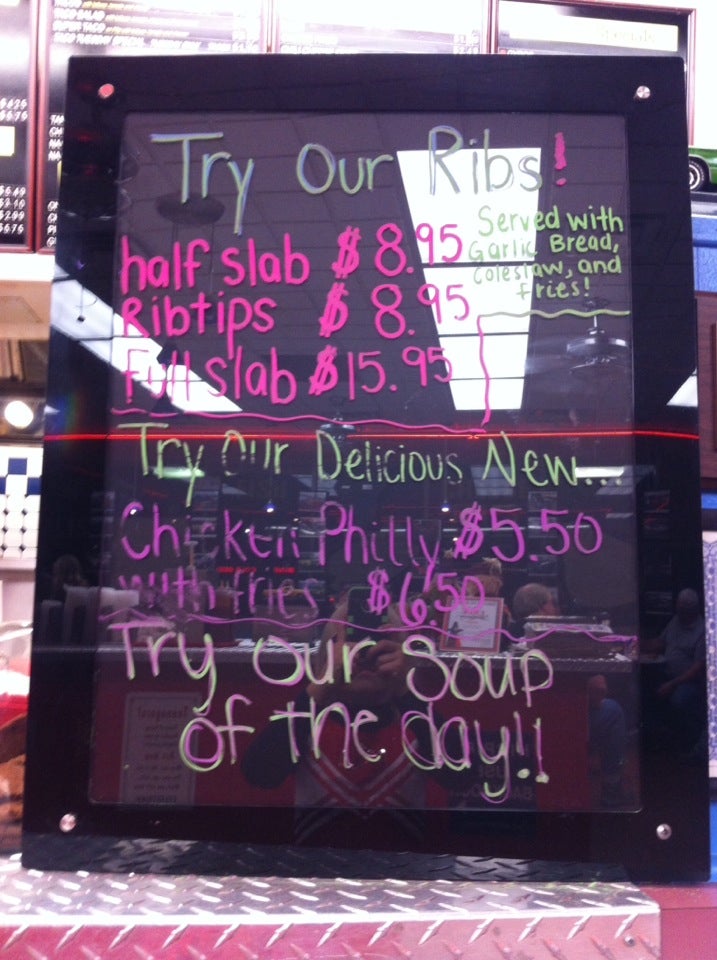 Try Our Ribs!
half slab $8.95
Ribtips $8.95
Full slab $15.95
Served with
Garlic Bread,
Coleslaw, and
fries!
Try Our Delicious New...
Chicken Philly $5.50
with fries $6.50
Try our Soup
of the day!!